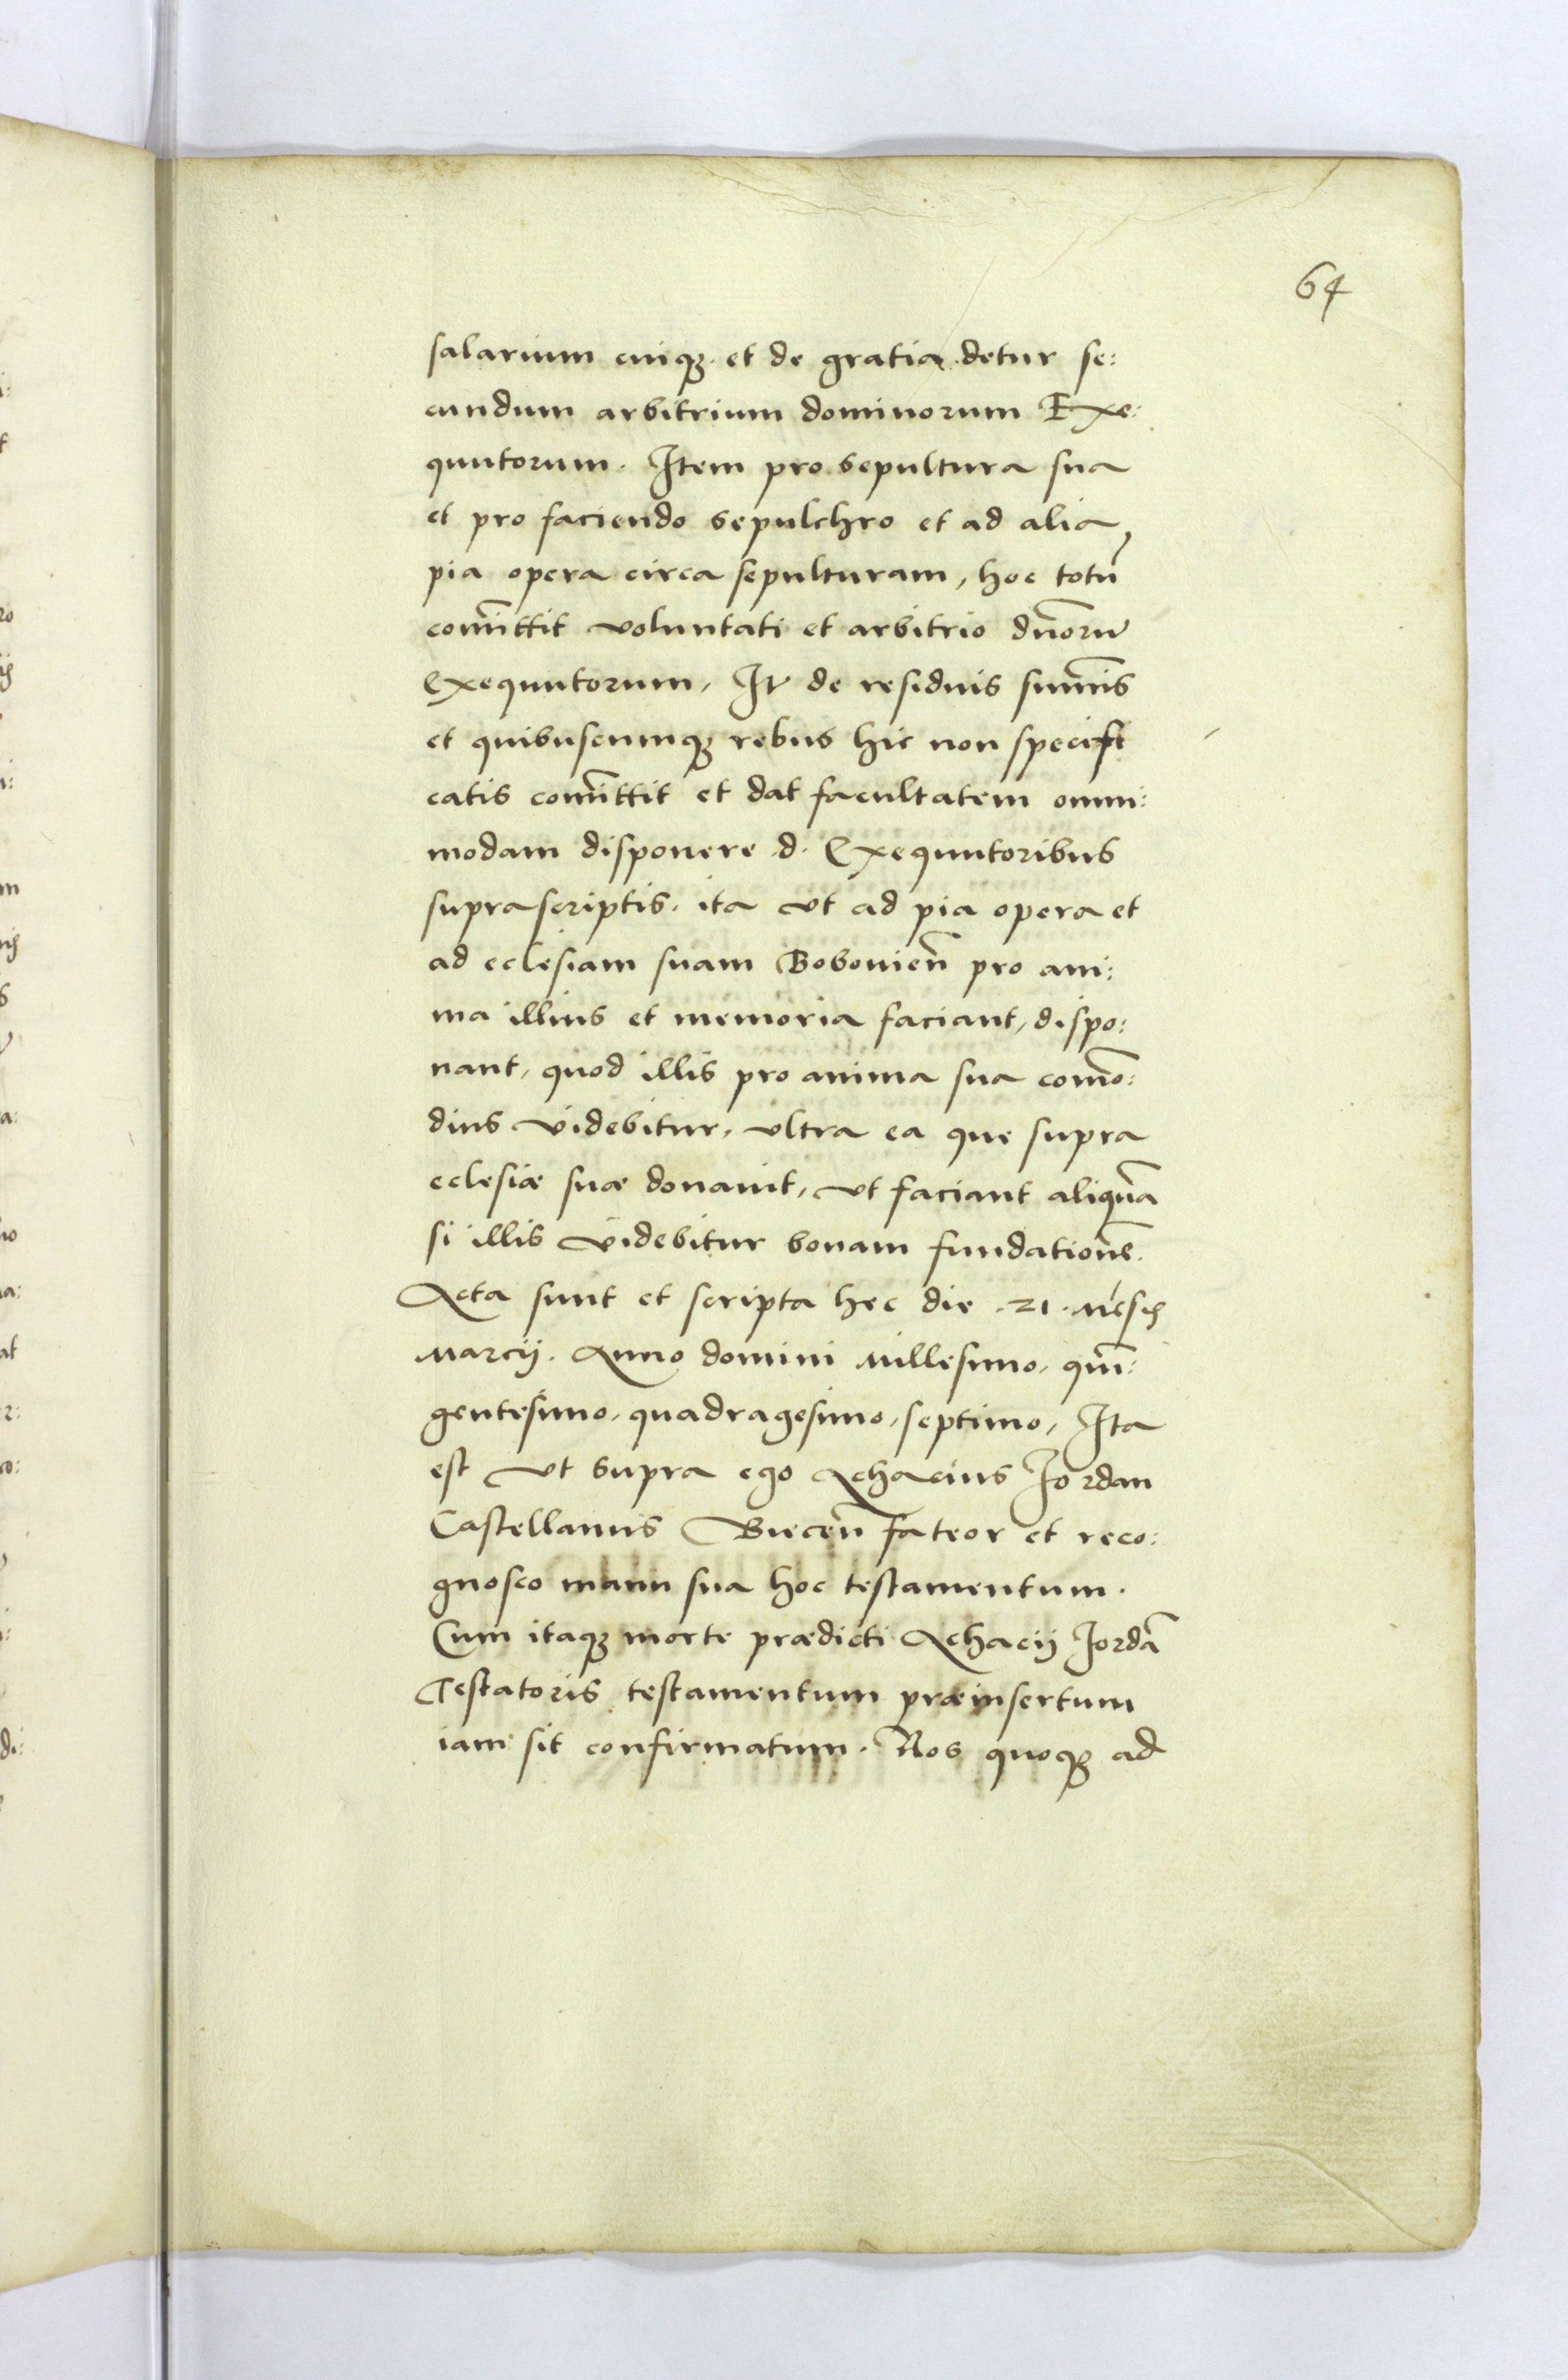 64
salarium cuiqꝫ et de gratia detur se:
cundum arbitrium dominorum Exe:
quutorum. Item pro sepultura sua
et pro faciendo sepulchro et ad alia
pia opera circa sepulturam, hoc totū
com̄ittit voluntati et arbitrio dn̄orum
Exequutorum, Itē de residuis sum̄is
et quibuscumqꝫ rebus hic non specifi
catis com̄ittit et dat facultatem omni:
modam disponere d. Exequutoribus
suprascriptis. ita vt ad pia opera et
ad eclesiam suam Bobovien̄ pro ani:
ma illius et memoria faciant, dispo:
nant, quod illis pro anima sua com̄o:
dius videbitur, vltra ea que supra
eclesiæ suæ donauit, vt faciant aliquā
si illis videbitur bonam fundationē.
Acta sunt et scripta hec die .21. Mēsis
Marcij. Anno domini Millesimo, quin̄:
gentesimo, quadragesimo, septimo, Ita
est vt supra ego Achacius Iordan
Castellanus Biecen̄ fateor et reco:
gnosco manu sua hoc testamentum.
Cum itaqꝫ morte prædicti Achacij Iordā
Testatoris testamentum præinsertum
iam sit confirmatum. Nos quoqꝫ ad